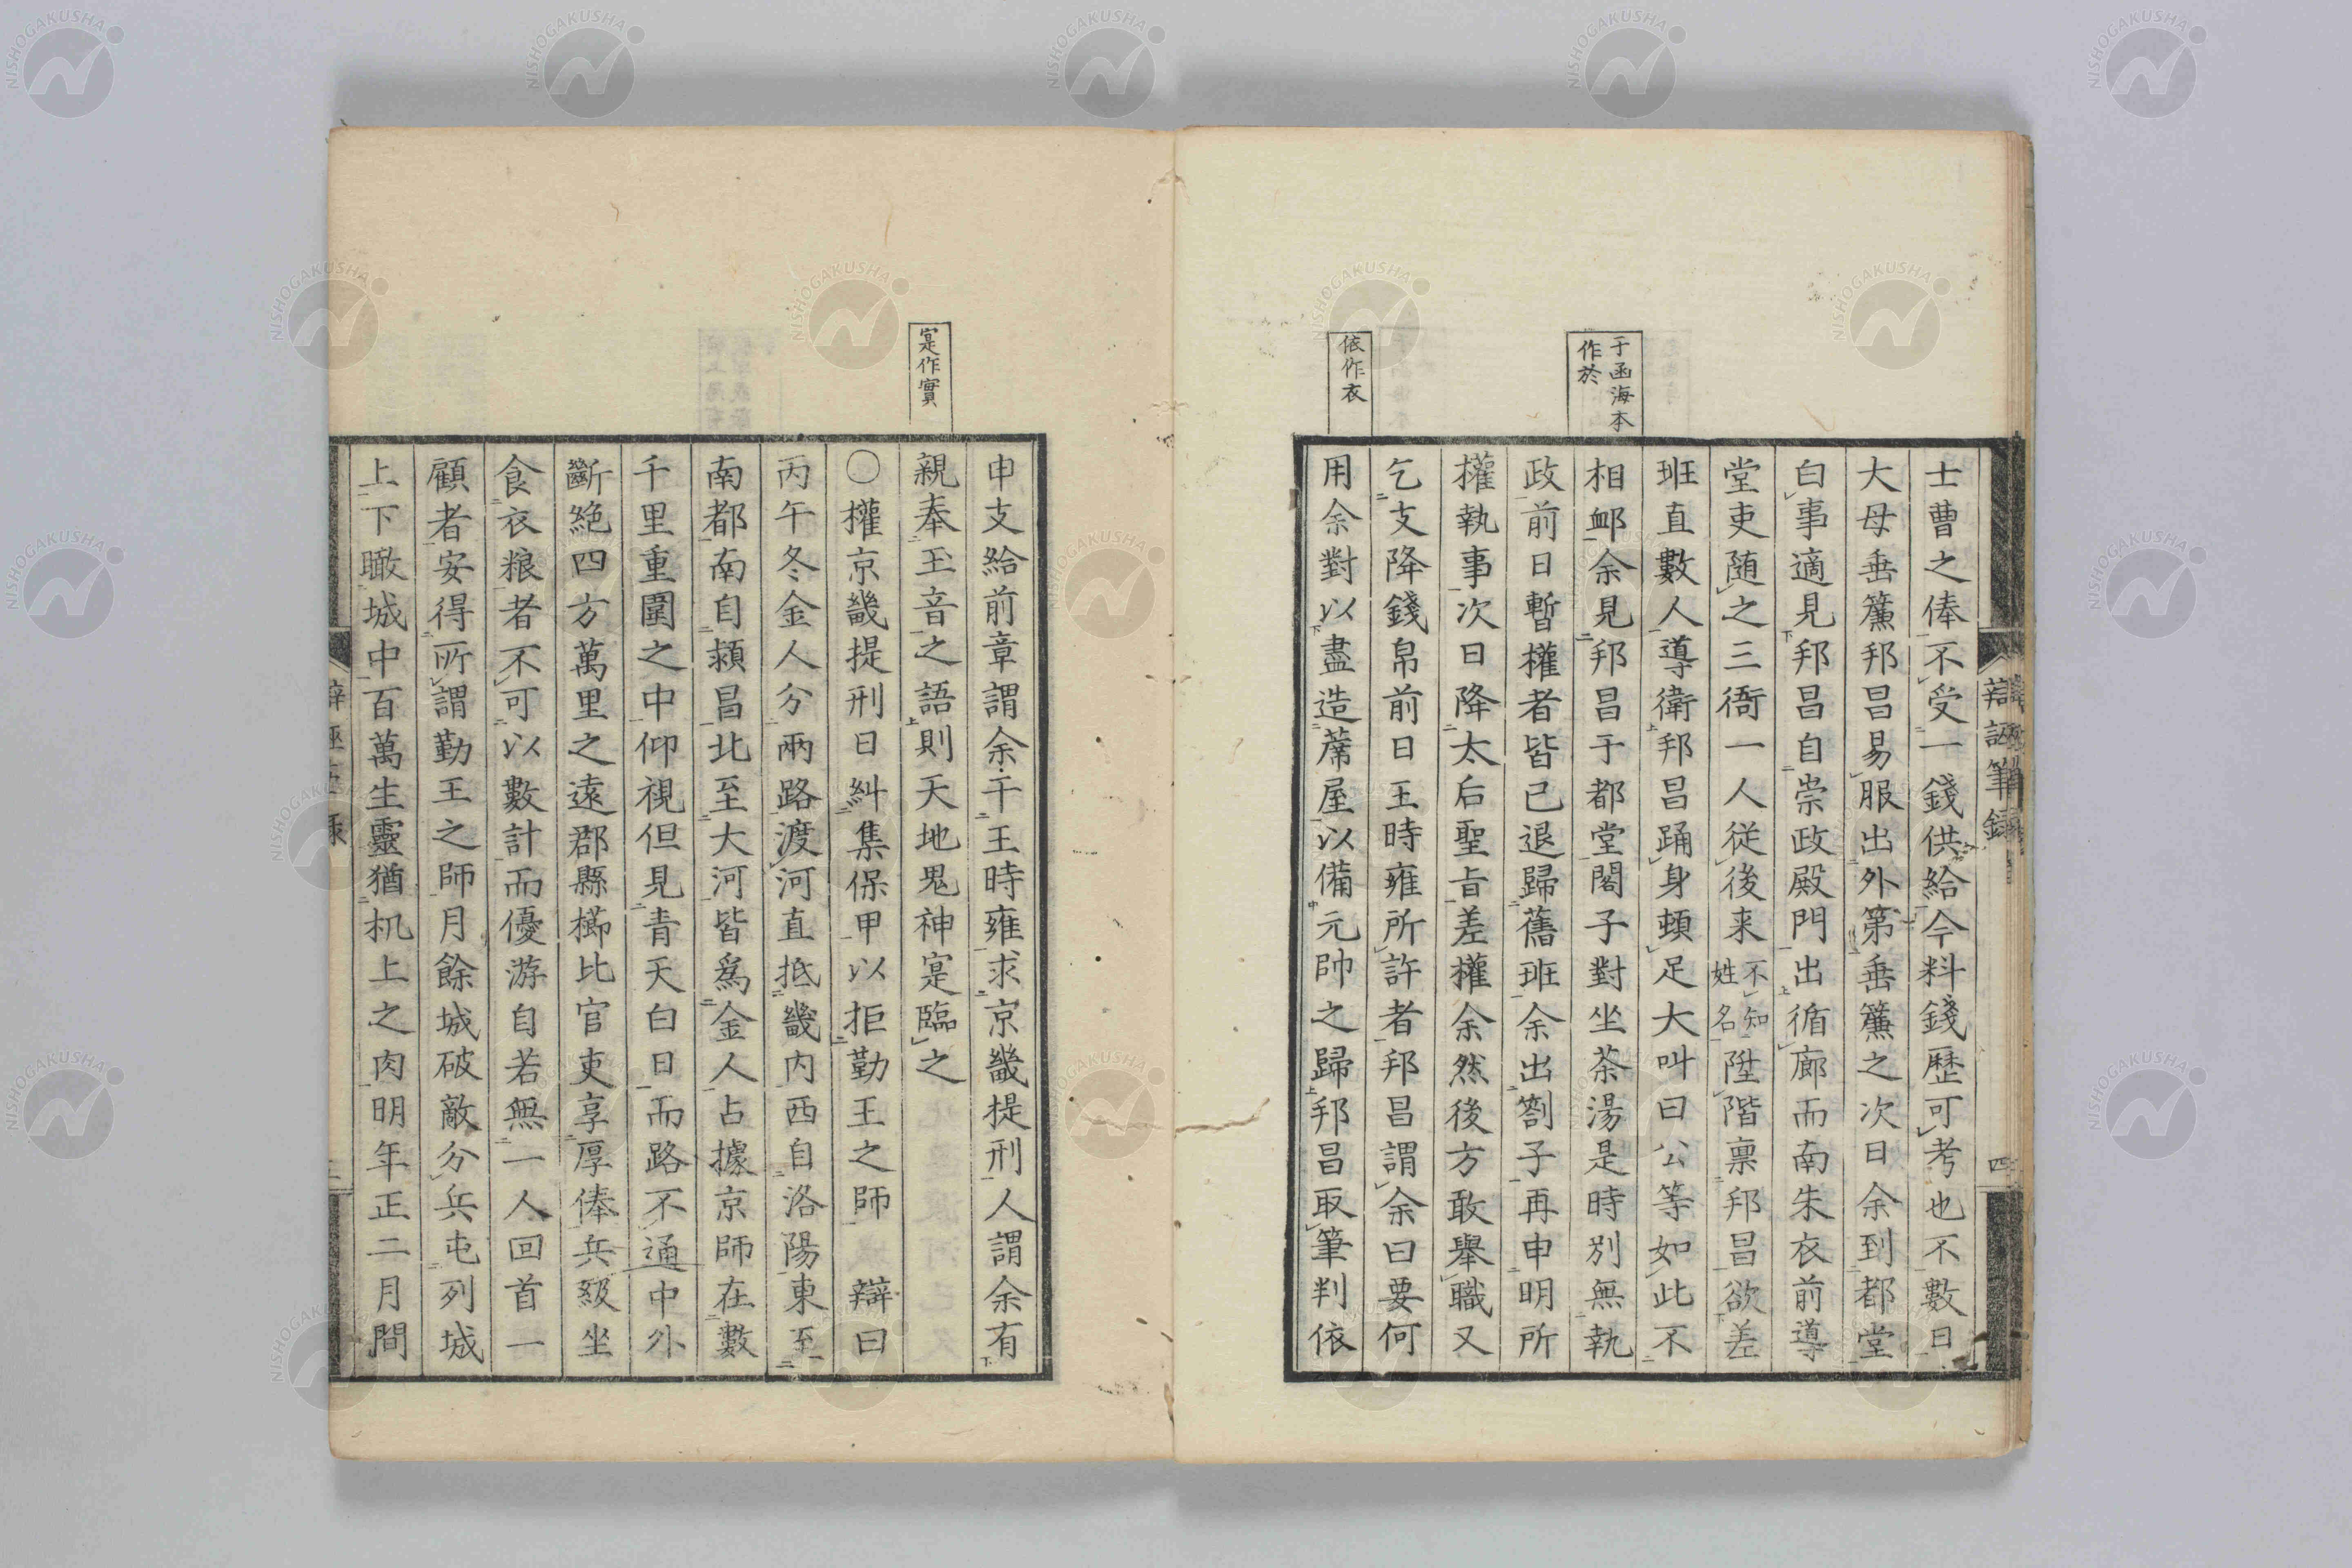 于函海本
作於
依作衣
士曹之俸不受一錢供給今料錢歷可考也不數日
大母垂簾邦昌易服出外第垂簾之次日余到都堂
白事適見邦昌自崇政殿門出循廊而南朱衣前導
堂吏随之三衙一人從後来不知姓名陞階禀邦昌欲差
班直數人導衛邦昌踊身頓足大叫曰公等如此不
相䘏余見邦昌于都堂閣子對坐茶湯是時別無執
政前日暫權者皆已退歸舊班余出劄子再申明所
權執事次日降太后聖旨差權余然後方敢舉職又
乞支降錢帛前日王時雍所許者邦昌謂余曰要何
用余對以盡造蓆屋以備元帥之歸邦昌取筆判依
辯誣筆録
四
寔作實
申支給前章謂余干王時雍求京畿提刑人謂余有
親奉玉音之語則天地鬼神寔臨之
〇權京畿提刑日糾集保甲以拒勤王之師 辯曰
丙午冬金人分兩路渡河直抵畿内西自洛陽東至
南都南自潁昌北至大河皆爲金人占據京師在數
千里重圍之中仰視但見青天白日而路不通中外
斷絶四方萬里之遠郡縣櫛比官吏享厚俸兵級坐
食衣粮者不可以數計而優游自若無一人回首一
顧者安得所謂勤王之師月餘城破敵分兵屯列城
上下瞰城中百萬生靈猶机上之肉明年正二月間
NISHOGAKUSHA